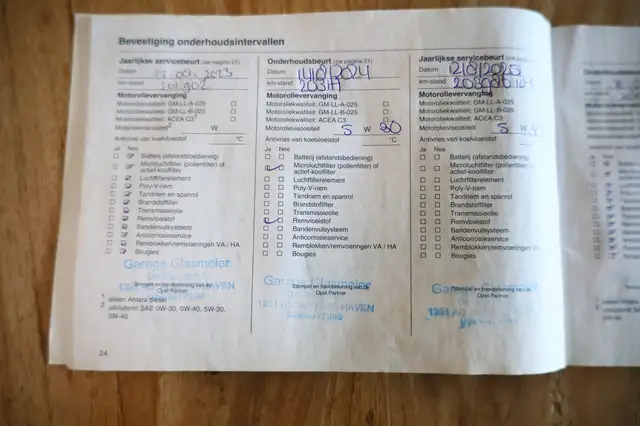 Bevestiging onderhoudsintervallen
Jaarlijkse servicebeurt (zie pagina 21)
Datum 17 09 2023
km-stand
Motorolievervanging
Motoroliekwaliteit: GM-LL-A-025
Motoroliekwaliteit: GM-LL-B-025
Motoroliekwaliteit: ACEA C3
Motorolieviscositeit W
Antivries van koelvloeistof °C
Ja Nee
Batterij (afstandsbediening)
Microluchtfilter (pollenfilter) of
actief-koolfilter
Luchtfilterelement
Poly-V-riem
Tandriem en spanrol
Brandstoffilter
Transmissieolie
Remvloeistof
Bandenvulsysteem
Anticorrosieservice
Remblokken/remvoeringen VA / HA
Bougies
Garage Glasmeier
Stempel en handtekening van de
Opel Partner
1 alleen Antara diesel
2 uitsluitend SAE 0W-30, 0W-40, 5W-30,
5W-40
24
Onderhoudsbeurt (zie pagina 21)
Datum 14/01/2024
km-stand
Motorolievervanging
Motoroliekwaliteit: GM-LL-A-025
Motoroliekwaliteit: GM-LL-B-025
Motoroliekwaliteit: ACEA C3
Motorolieviscositeit 5 W 30
Antivries van koelvloeistof °C
Ja Nee
Batterij (afstandsbediening)
Microluchtfilter (pollenfilter) of
actief-koolfilter
Luchtfilterelement
Poly-V-riem
Tandriem en spanrol
Brandstoffilter
Transmissieolie
Remvloeistof
Bandenvulsysteem
Anticorrosieservice
Remblokken/remvoeringen VA / HA
Bougies
Stempel en handtekening van de
Opel Partner
HAVEN
Jaarlijkse servicebeurt (zie pagina 21)
Datum
km-stand
Motorolievervanging
Motoroliekwaliteit: GM-LL-A-025
Motoroliekwaliteit: GM-LL-B-025
Motoroliekwaliteit: ACEA C3
Motorolieviscositeit 5 W
Antivries van koelvloeistof
Ja Nee
Batterij (afstandsbediening)
Microluchtfilter (pollenfilter) of
actief-koolfilter
Luchtfilterelement
Poly-V-riem
Tandriem en spanrol
Brandstoffilter
Transmissieolie
Remvloeistof
Bandenvulsysteem
Anticorrosieservice
Remblokken/remvoeringen VA / HA
Bougies
Stempel en handtekening van de
Opel Partner